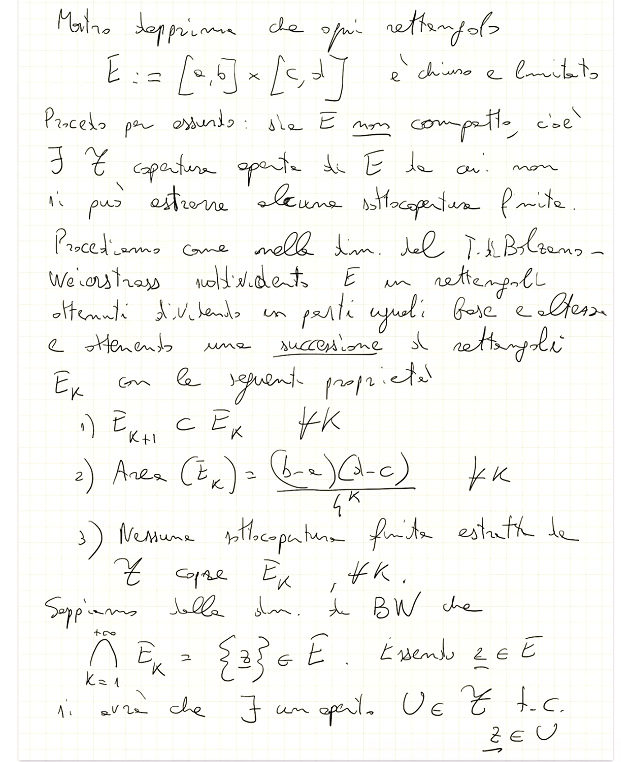 Mostro dapprima che ogni rettangolo
E := [a,b] × [c,d] è chiuso e limitato
Procedo per assurdo: sia E non compatto, cioè
∃ 𝓕 copertura aperta di E da cui non
si può estrarre alcuna sottocopertura finita.
Procediamo come nella dim. del T. di Bolzano-
Weierstrass suddividendo E in rettangoli
ottenuti dividendo in parti uguali base e altezza
e ottenendo una successione di rettangoli
E_K con le seguenti proprietà
1) E_{K+1} ⊂ E_K ∀K
2) Area (E_K) = (b-a)(d-c) / 4^K ∀K
3) Nessuna sottocopertura finita estratta da
𝓕 copre E_K, ∀K.
Sappiamo dalla dim. di BW che
⋂_{K=1}^{+∞} E_K = {z} ∈ E. Essendo z ∈ E
si avrà che ∃ un aperto U ∈ 𝓕 t.c.
z ∈ U